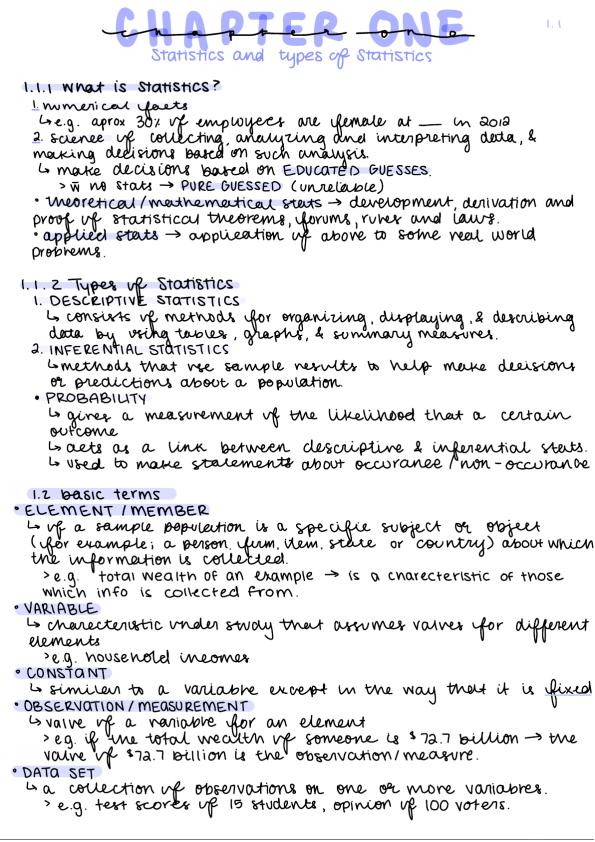 CHAPTER ONE
chapter one
1.1
Statistics and types of Statistics
1.1.1 What is Statistics?
1. numerical facts
↳ e.g. aprox 30% of employees are female at ___ in 2012
2. science of collecting, analyzing and interpreting data, &
making decisions based on such analysis.
↳ make decisions based on EDUCATED GUESSES.
> w̄ no stats → PURE GUESSED (unrelable)
• theoretical/mathematical stats → development, derivation and
proof of statistical theorems, forums, rules and laws.
• applied stats → application of above to some real world
problems.
1.1.2 Types of Statistics
1. DESCRIPTIVE STATISTICS
↳ consists of methods for organizing, displaying, & describing
data by using tables, graphs, & summary measures.
2. INFERENTIAL STATISTICS
↳ methods that use sample results to help make decisions
or predictions about a population.
• PROBABILITY
↳ gives a measurement of the likelihood that a certain
outcome
↳ acts as a link between descriptive & inferential stats.
↳ used to make statements about occurance / non-occurance
1.2 basic terms
• ELEMENT / MEMBER
↳ of a sample population is a specific subject or object
(for example; a person, firm, item, state or country) about which
the information is collected.
> e.g. total wealth of an example → is a charecteristic of those
which info is collected from.
• VARIABLE
↳ characteristic under study that assumes values for different
elements
> e.g. household incomes
• CONSTANT
↳ similar to a variable except in the way that it is fixed
• OBSERVATION / MEASUREMENT
↳ value of a variable for an element
> e.g. if the total wealth of someone is $72.7 billion → the
value of $72.7 billion is the observation/measure.
• DATA SET
↳ a collection of observations on one or more variables.
> e.g. test scores of 15 students, opinion of 100 voters.